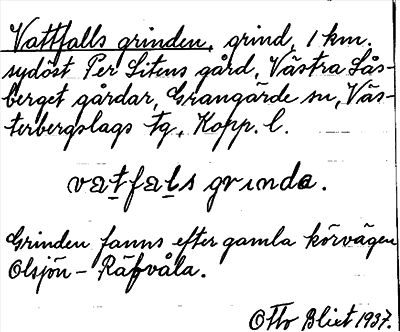 Vattfalls grinden, grind, 1 km.
sydöst Per Litens gård, Västra Lås-
berget gårdar, Grangärde sn, Väs-
terbergslags tg, Kopp. l.
vatfals grinda.
Grinden fanns efter gamla körvägen
Olsjön - Räfvåla.
Otto Blixt 1937.